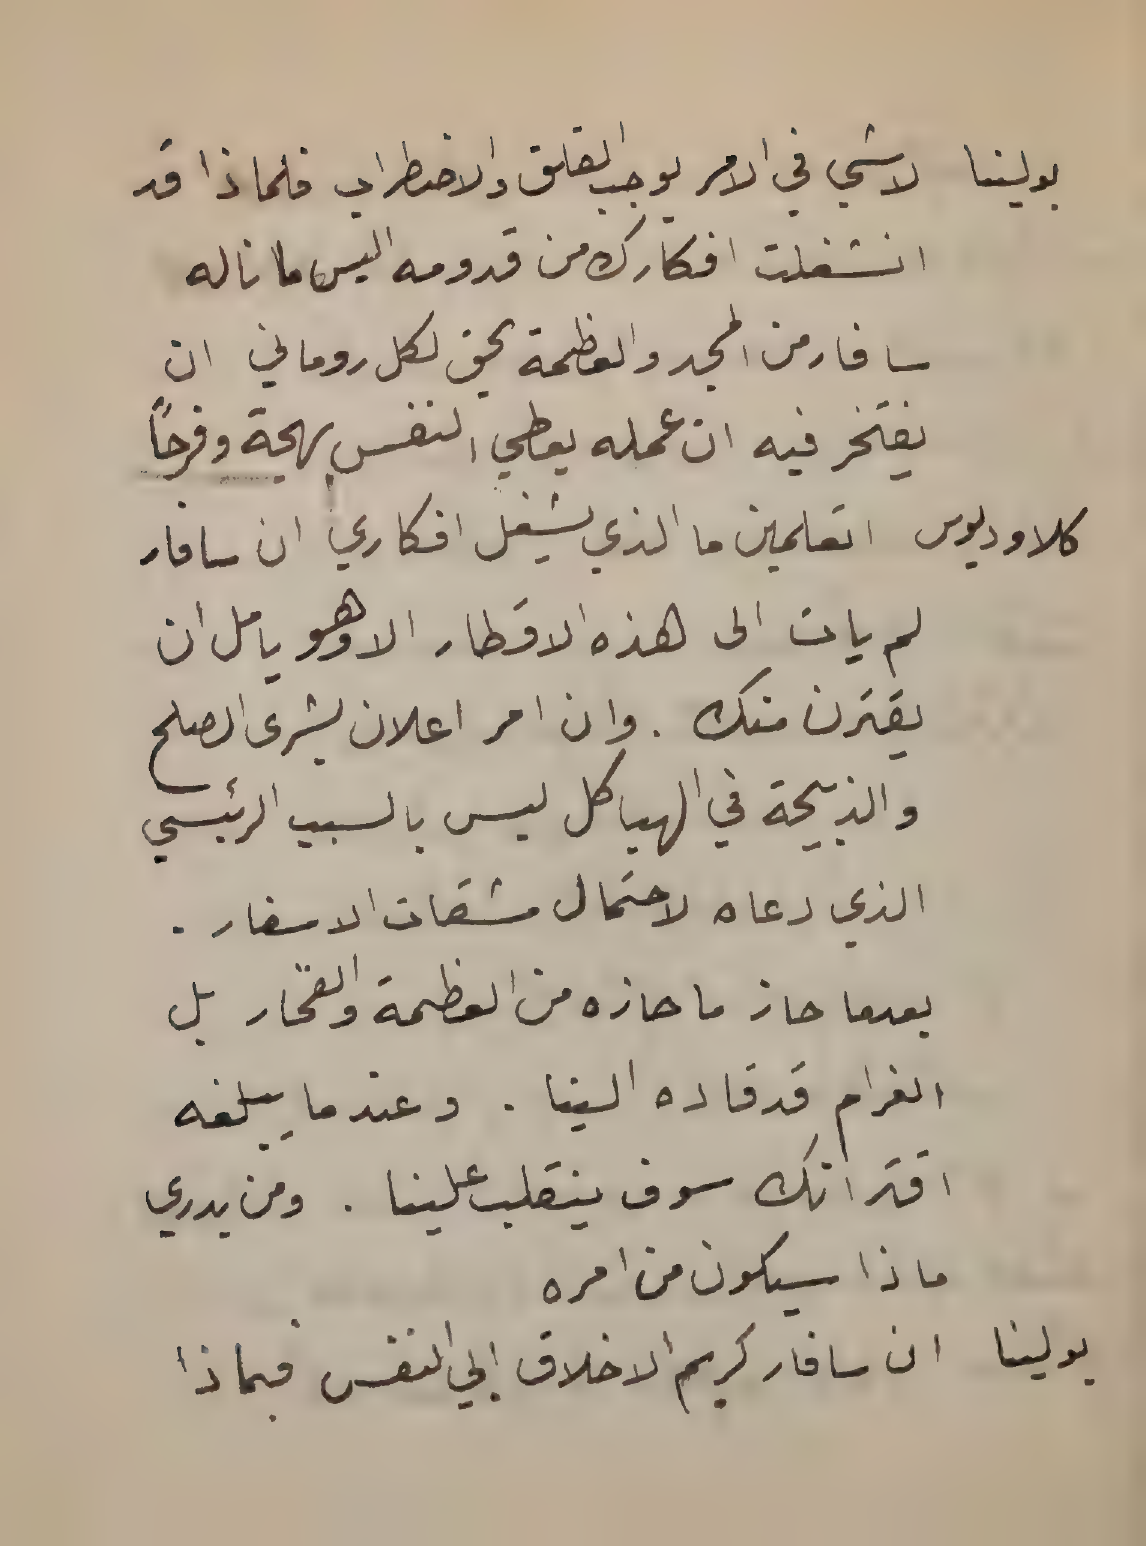 بولينا لاشي في الامر يوجب القلق والاضطراب فلماذا قد
انشغلت افكارك من قدومه اليس ما ناله
سافار من المجد والعظمة يحق لكل روماني ان
يفتخر فيه ان عمله يعطي النفس بهجة وفرحاً
كلاوديوس اتعلمين ما الذي يشغل افكاري ان سافار
لم يات الى هذه الاقطار الا وهو يامل ان
يقترن منك . وان امر اعلان بشرى الصلح
والذبيحة في الهياكل ليس بالسبب الرئسي
الذي دعاه لاحتمال مشقات الاسفار .
بعدما حاز ما حازه من العظمة والفخار بل
الغرام قد قاده الينا . وعندما يبلغه
اقترانك سوف ينقلب علينا . ومن يدري
ماذا سيكون من امره
بولينا ان سافار كريم الاخلاق ابي النفس فبماذا